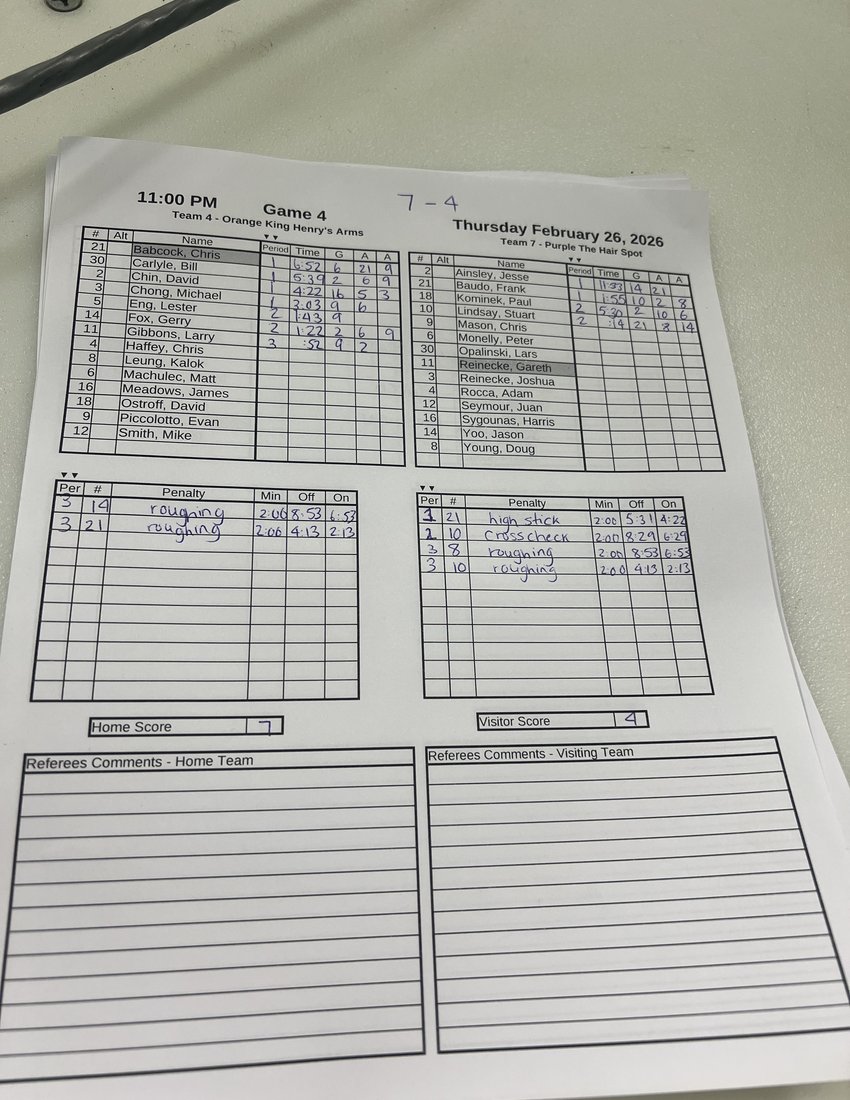 7 - 4
11:00 PM Game 4 Thursday February 26, 2026
Team 4 - Orange King Henry's Arms
# Alt Name Period Time G A A
21 Babcock, Chris 1 6:52 6 21 9
30 Carlyle, Bill 1 5:39 2 6 9
2 Chin, David 1 4:22 16 5 3
3 Chong, Michael 1 3:03 9 6
5 Eng, Lester 2 1:43 9
14 Fox, Gerry 2 1:22 2 6 9
11 Gibbons, Larry 3 :52 9 2
4 Haffey, Chris
8 Leung, Kalok
6 Machulec, Matt
16 Meadows, James
18 Ostroff, David
9 Piccolotto, Evan
12 Smith, Mike
Team 7 - Purple The Hair Spot
# Alt Name Period Time G A A
2 Ainsley, Jesse 1 11:53 14 21
21 Baudo, Frank 1 1:55 10 2 8
18 Kominek, Paul 2 5:30 2 10 6
10 Lindsay, Stuart 2 :14 21 8 14
9 Mason, Chris
6 Monelly, Peter
30 Opalinski, Lars
11 Reinecke, Gareth
3 Reinecke, Joshua
4 Rocca, Adam
12 Seymour, Juan
16 Sygounas, Harris
14 Yoo, Jason
8 Young, Doug
Per # Penalty Min Off On
3 14 roughing 2:00 8:53 6:53
3 21 roughing 2:00 4:13 2:13
Per # Penalty Min Off On
1 21 high stick 2:00 5:31 4:22
2 10 Crosscheck 2:00 8:29 6:29
3 8 roughing 2:00 8:53 6:53
3 10 roughing 2:00 4:13 2:13
Home Score 7
Visitor Score 4
Referees Comments - Home Team
Referees Comments - Visiting Team